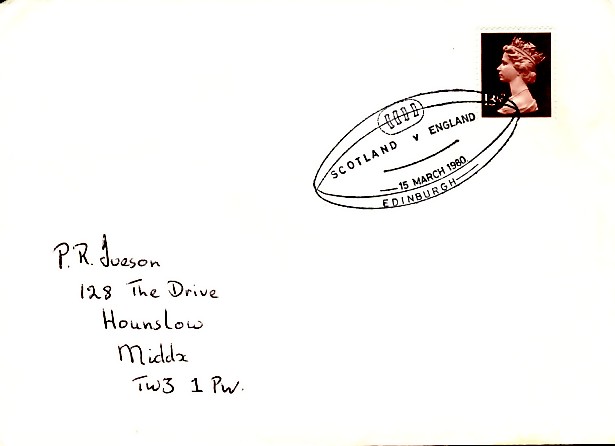 SCOTLAND v ENGLAND
15 MARCH 1980
EDINBURGH
P. R. Iveson
128 The Drive
Hounslow
Middx
TW3 1 PW.